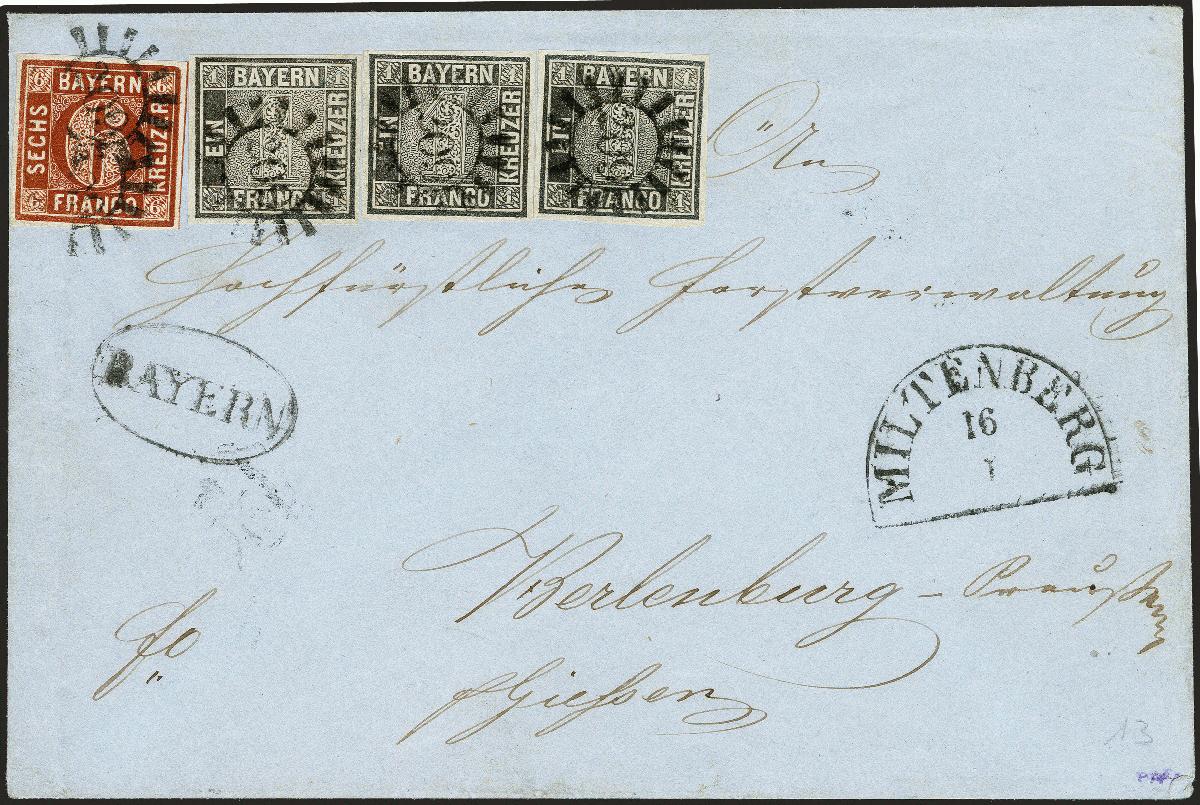 6 BAYERN 6
SECHS
KREUZER
6 FRANCO 6
1 BAYERN 1
EIN
KREUZER
FRANCO 1
1 BAYERN 1
EIN
KREUZER
1 FRANCO 1
1 BAYERN 1
EIN
KREUZER
1 FRANCO 1
An
Hochfürstliche Forstverwaltung
BAYERN
MILTENBERG
16
1
Berlenburg – Preußen
fo
Giessen
13